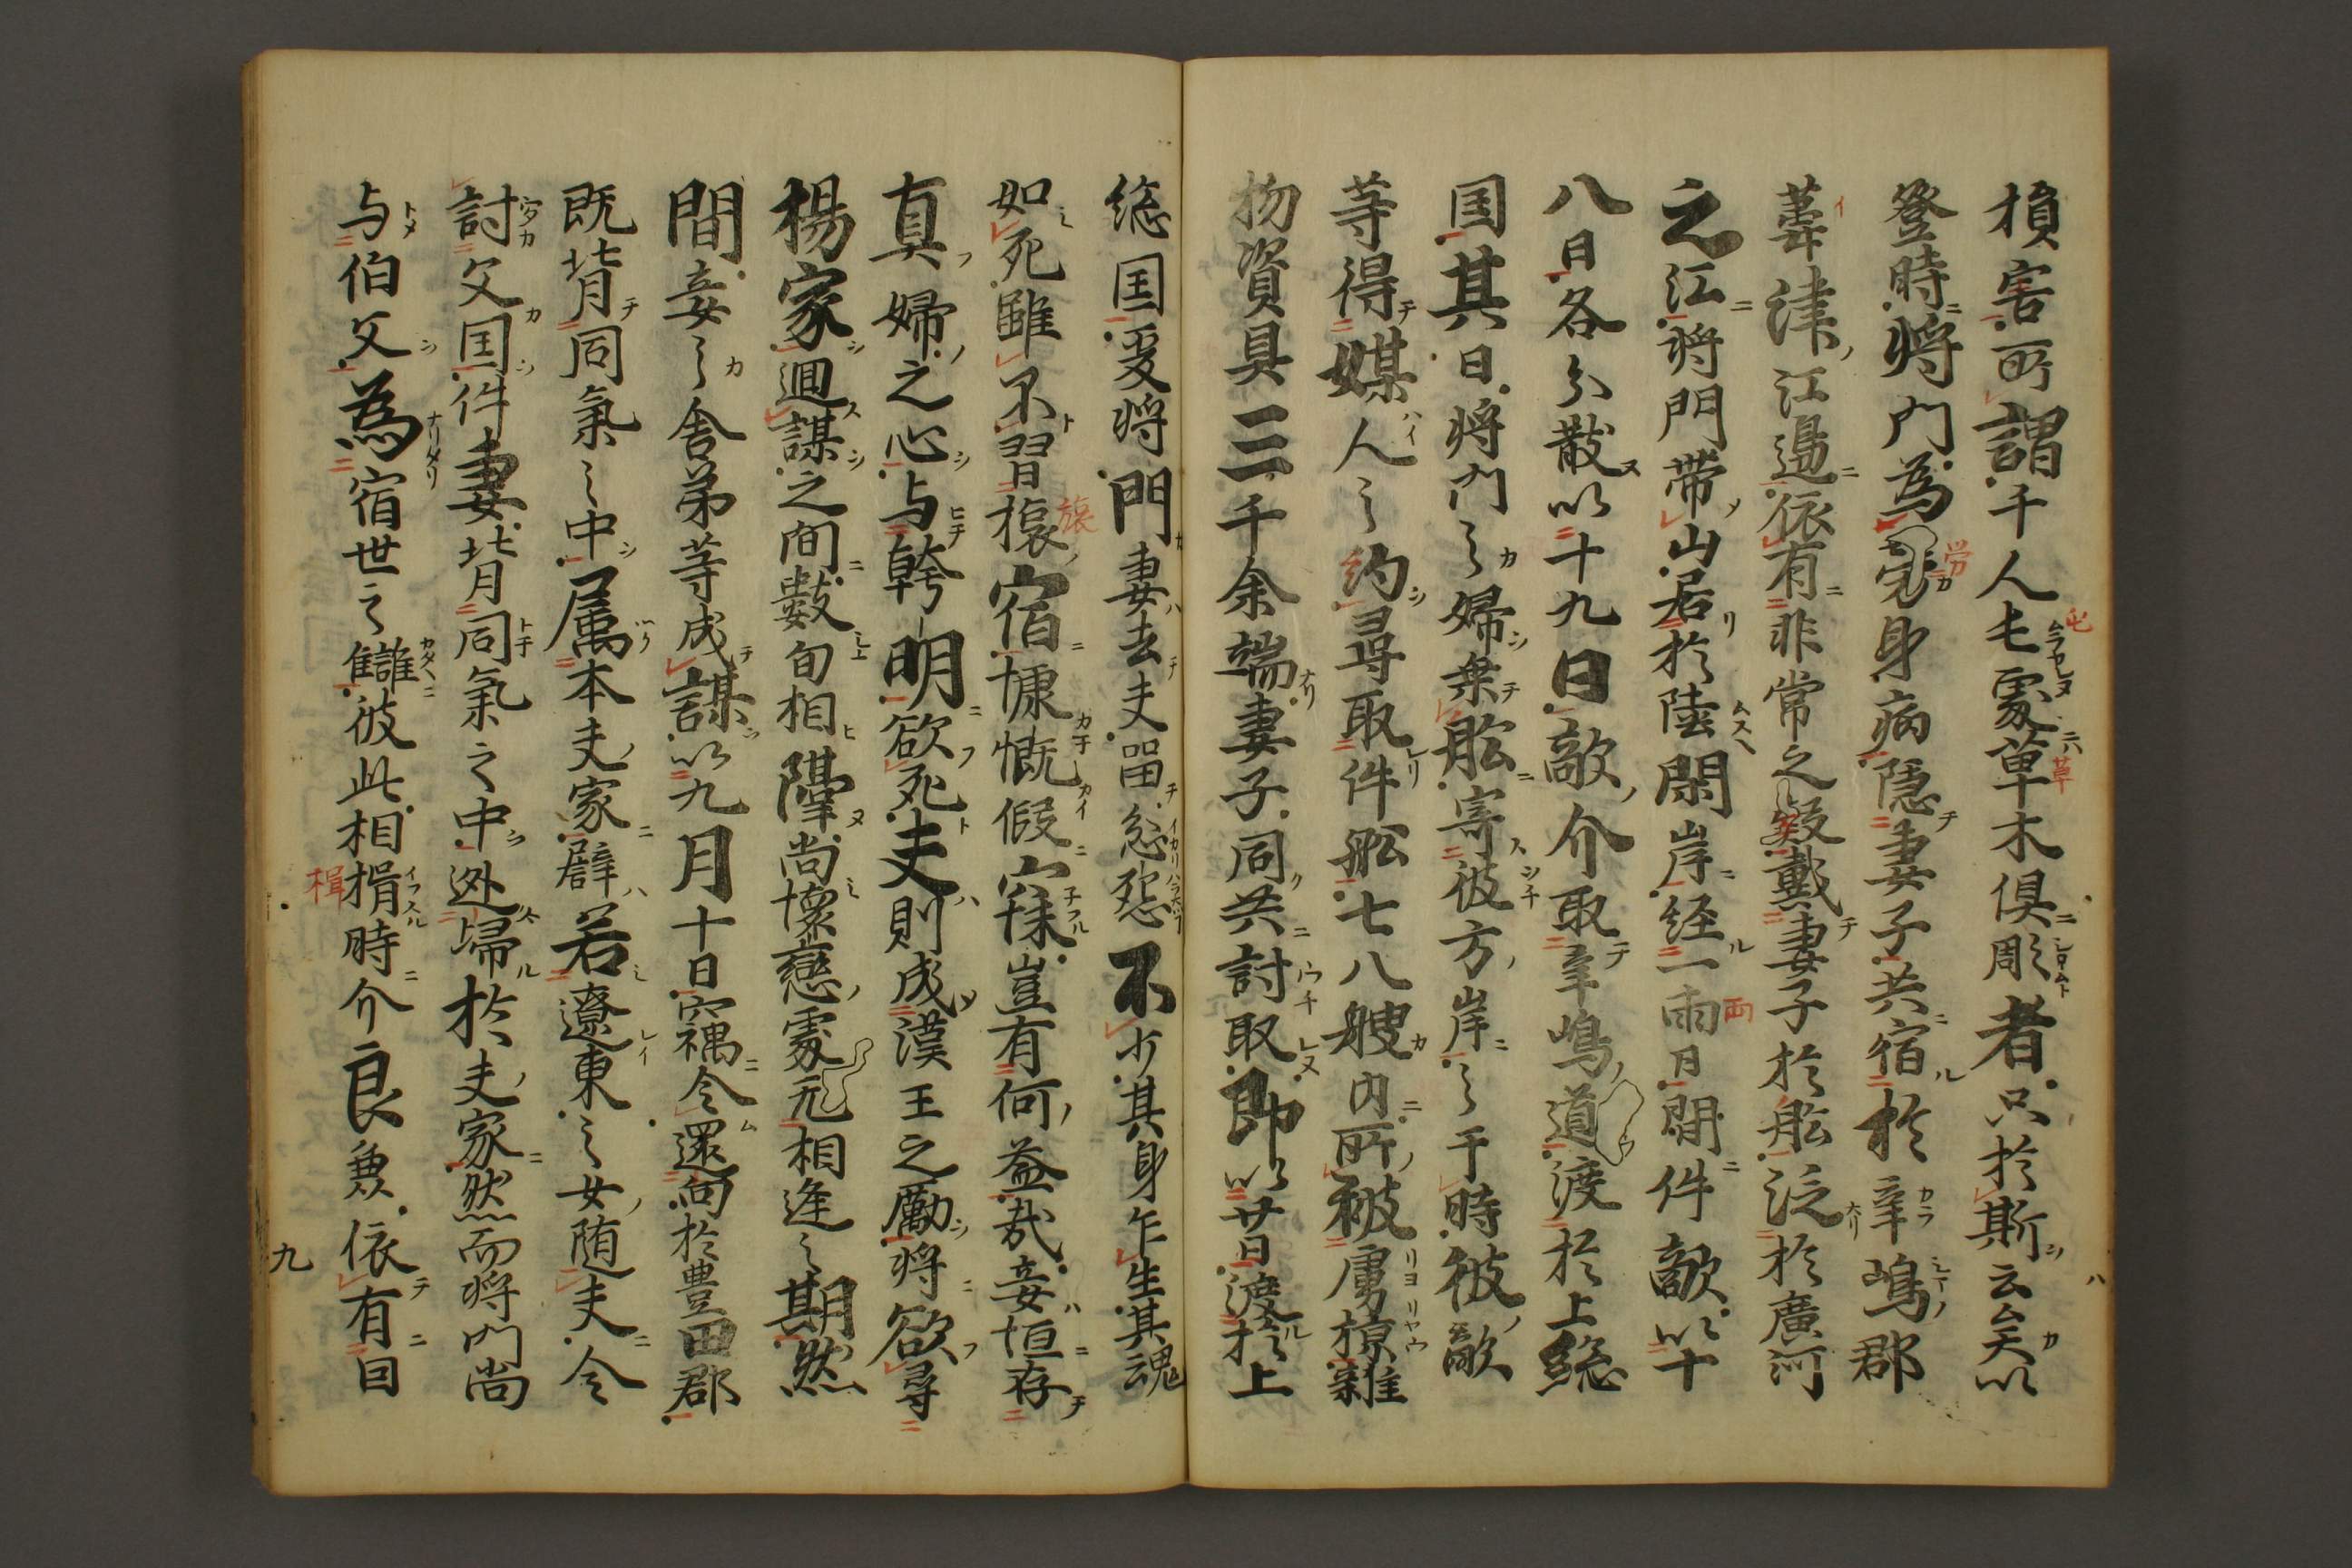 損害所謂千人屯処草木倶彫者只於斯云矣以
登時将門為労身病隠妻子共宿於辛嶋郡
葦津江邊依有非常之疑戴妻子於舩泛於廣河
之江将門帯山居於陸閑岸経一両日間件敵以十
八日各分散以十九日敵介取辛嶋道渡於上総
国其日将門之婦乗舩寄彼方岸之于時彼敵
等得媒人之約尋取件舩七八艘内所被虜掠雑
物資具三千余端妻子同共討取即以廿日渡於上
総国爰将門妻去夫留忿怨不少其身乍生其魂
如死雖不習旅宿慷慨假寐豈有何益哉妾恒存
真婦之心与幹明欲死夫則成漢王之勵将欲尋
楊家廻謀之間數旬相隔尚懐戀處无相逢之期然
間妾之舎弟等成謀以九月十日竊令還向於豊田郡
既背同氣之中属本夫家辟若遼東之女随夫令
討父国件妻背同氣之中迯帰於夫家然而将門尚
与伯父為宿世之讎彼此相揖時介良兼依有因
九